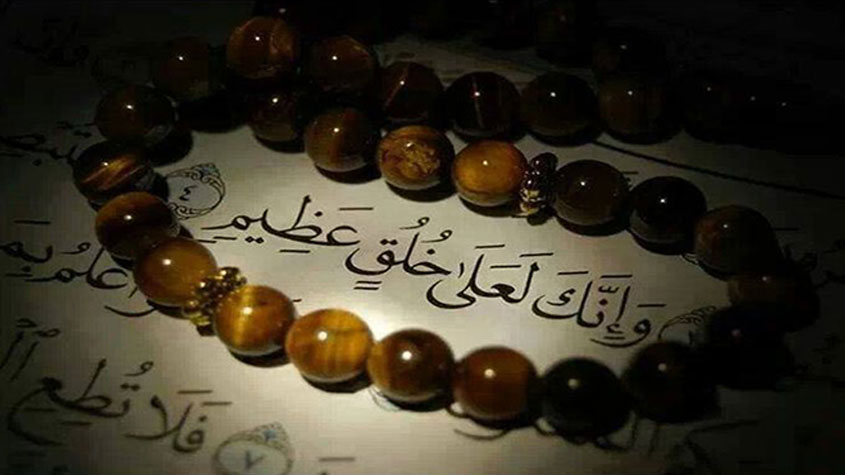 وَإِنَّكَ لَعَلَىٰ خُلُقٍ عَظِيمٍ ٤
أَعْلَمُ بِمَ
٧ فَلَا تُطِعِ